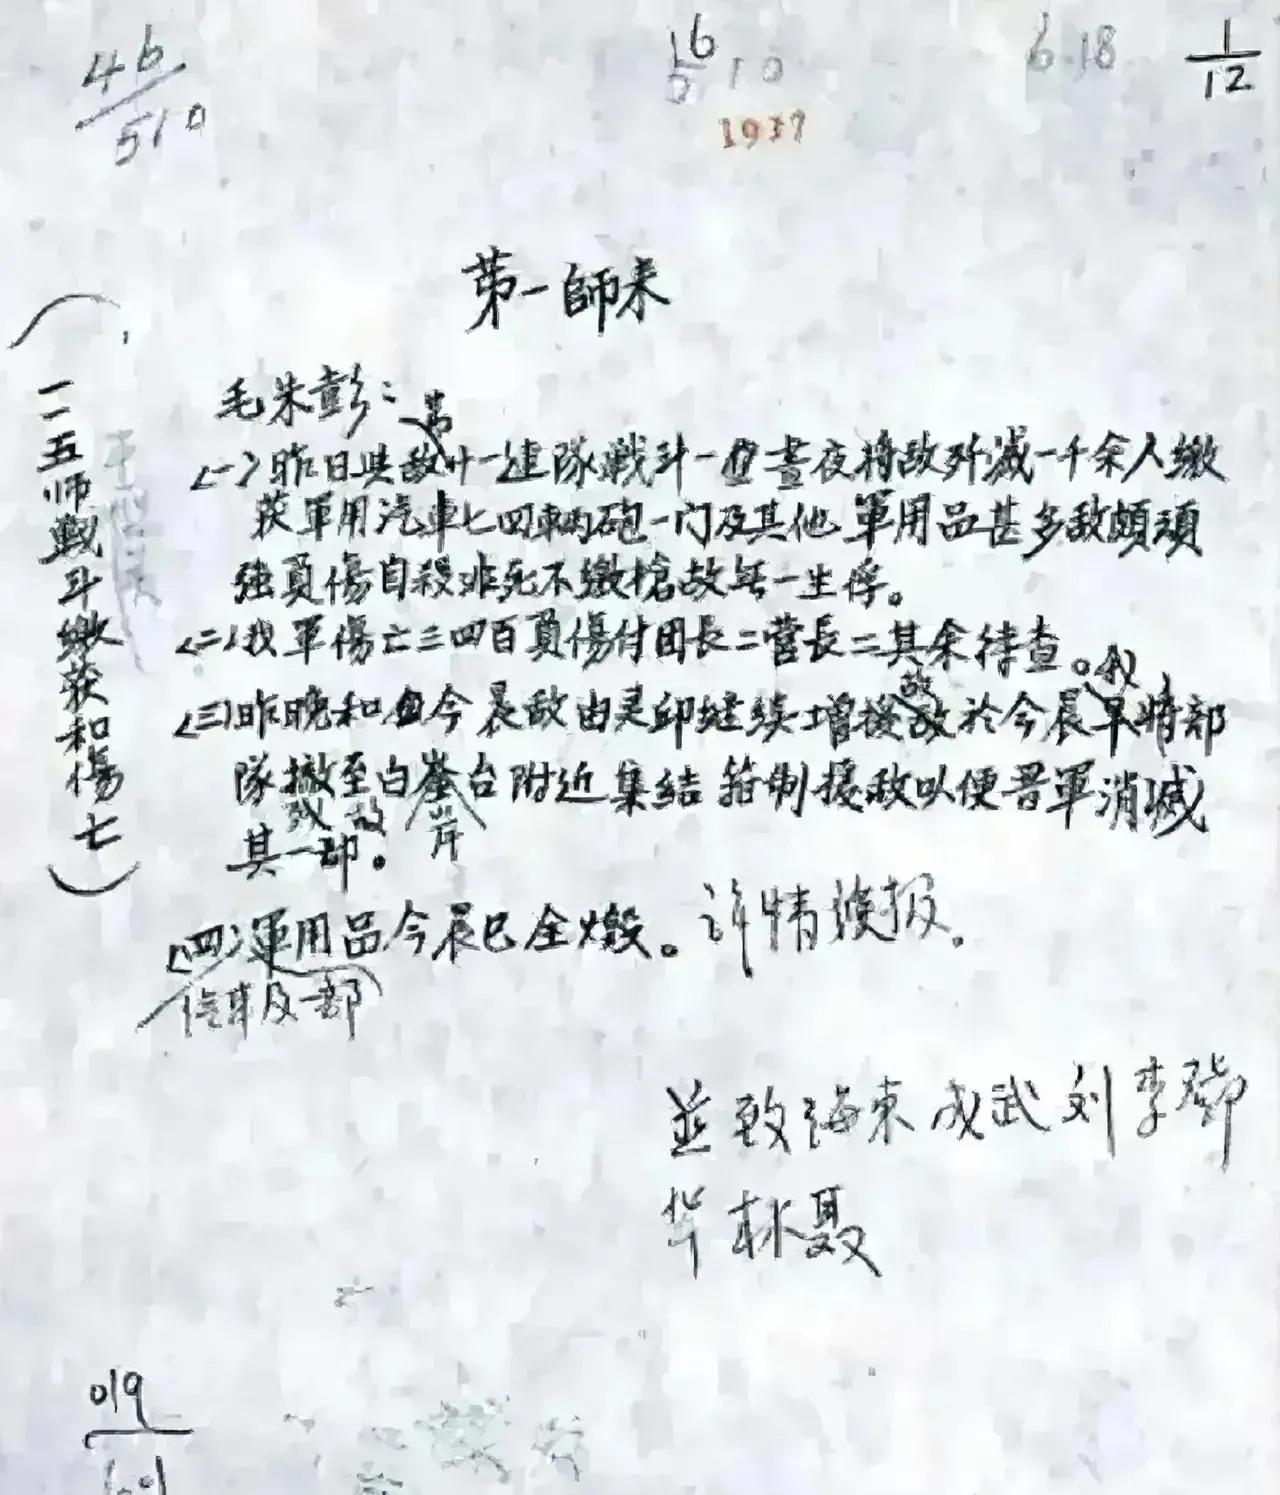 46
510
16
5 10
1937
6.18
1
12
第一師来
毛朱彭：
（一）昨日与敌廿一連隊戦斗一昼夜将敌歼滅一千余人缴
获軍用汽車七四車両砲一门及其他軍用品甚多敌頗頑
強負傷自殺非死不缴槍故無一生俘。
（二）我軍傷亡三四百負傷付团長二营長二其余待查。
我
敌
（三）昨晚和今晨敌由灵邱继续增援敌於今晨早将部
隊撤至白崟台附近集結箝制援敌以便晋軍消滅
岸
其一部。
（四）軍用品今晨已全燬。詳情候报。
汽車及一部
並致海東成武刘李鄧
林聂
（一一五师戰斗缴获和傷亡）
019